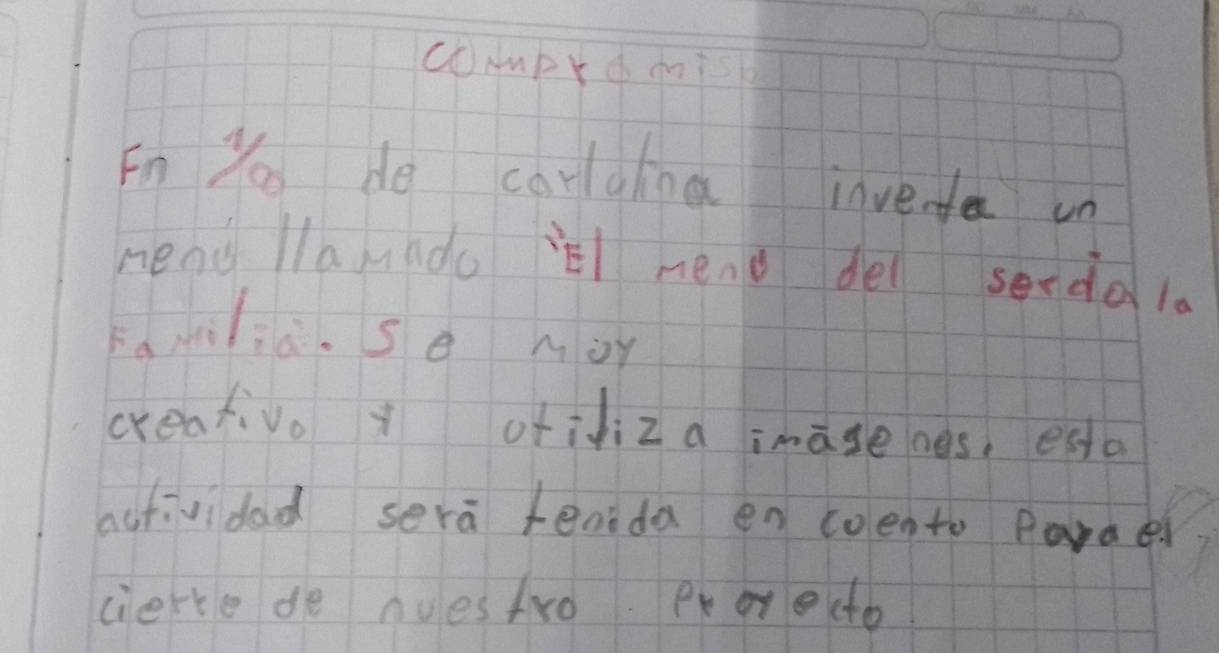 compromiso
En 1/8 de cartulina inventa un
menú llamado "El menú del serdala
Familia. Se moy
creativo y otiliza imágenes, esta
actividad será tenida en coento para el
cierre de nuestro proyecto